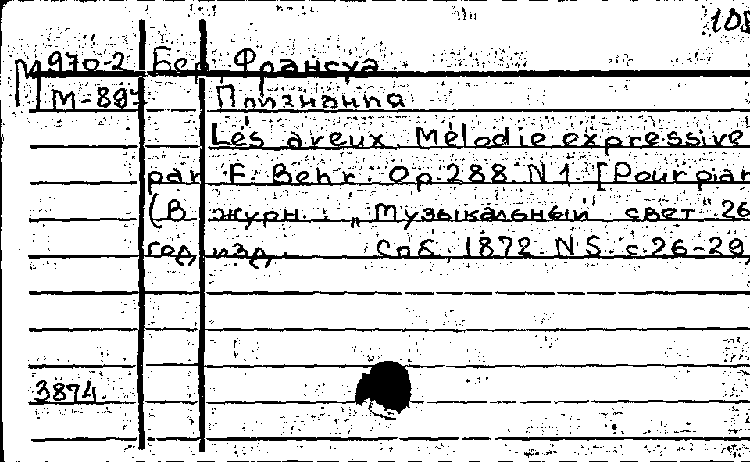 108
М 970-2 Бер, Франсуа
М-897 Признания
Les aveux. Mélodie expressive
par F. Behr. Op. 288. N 1. [Pour pian
(В журн.: „Музыкальный свет" 26
год изд. Спб. 1872. N 5. с. 26-29,
3874.